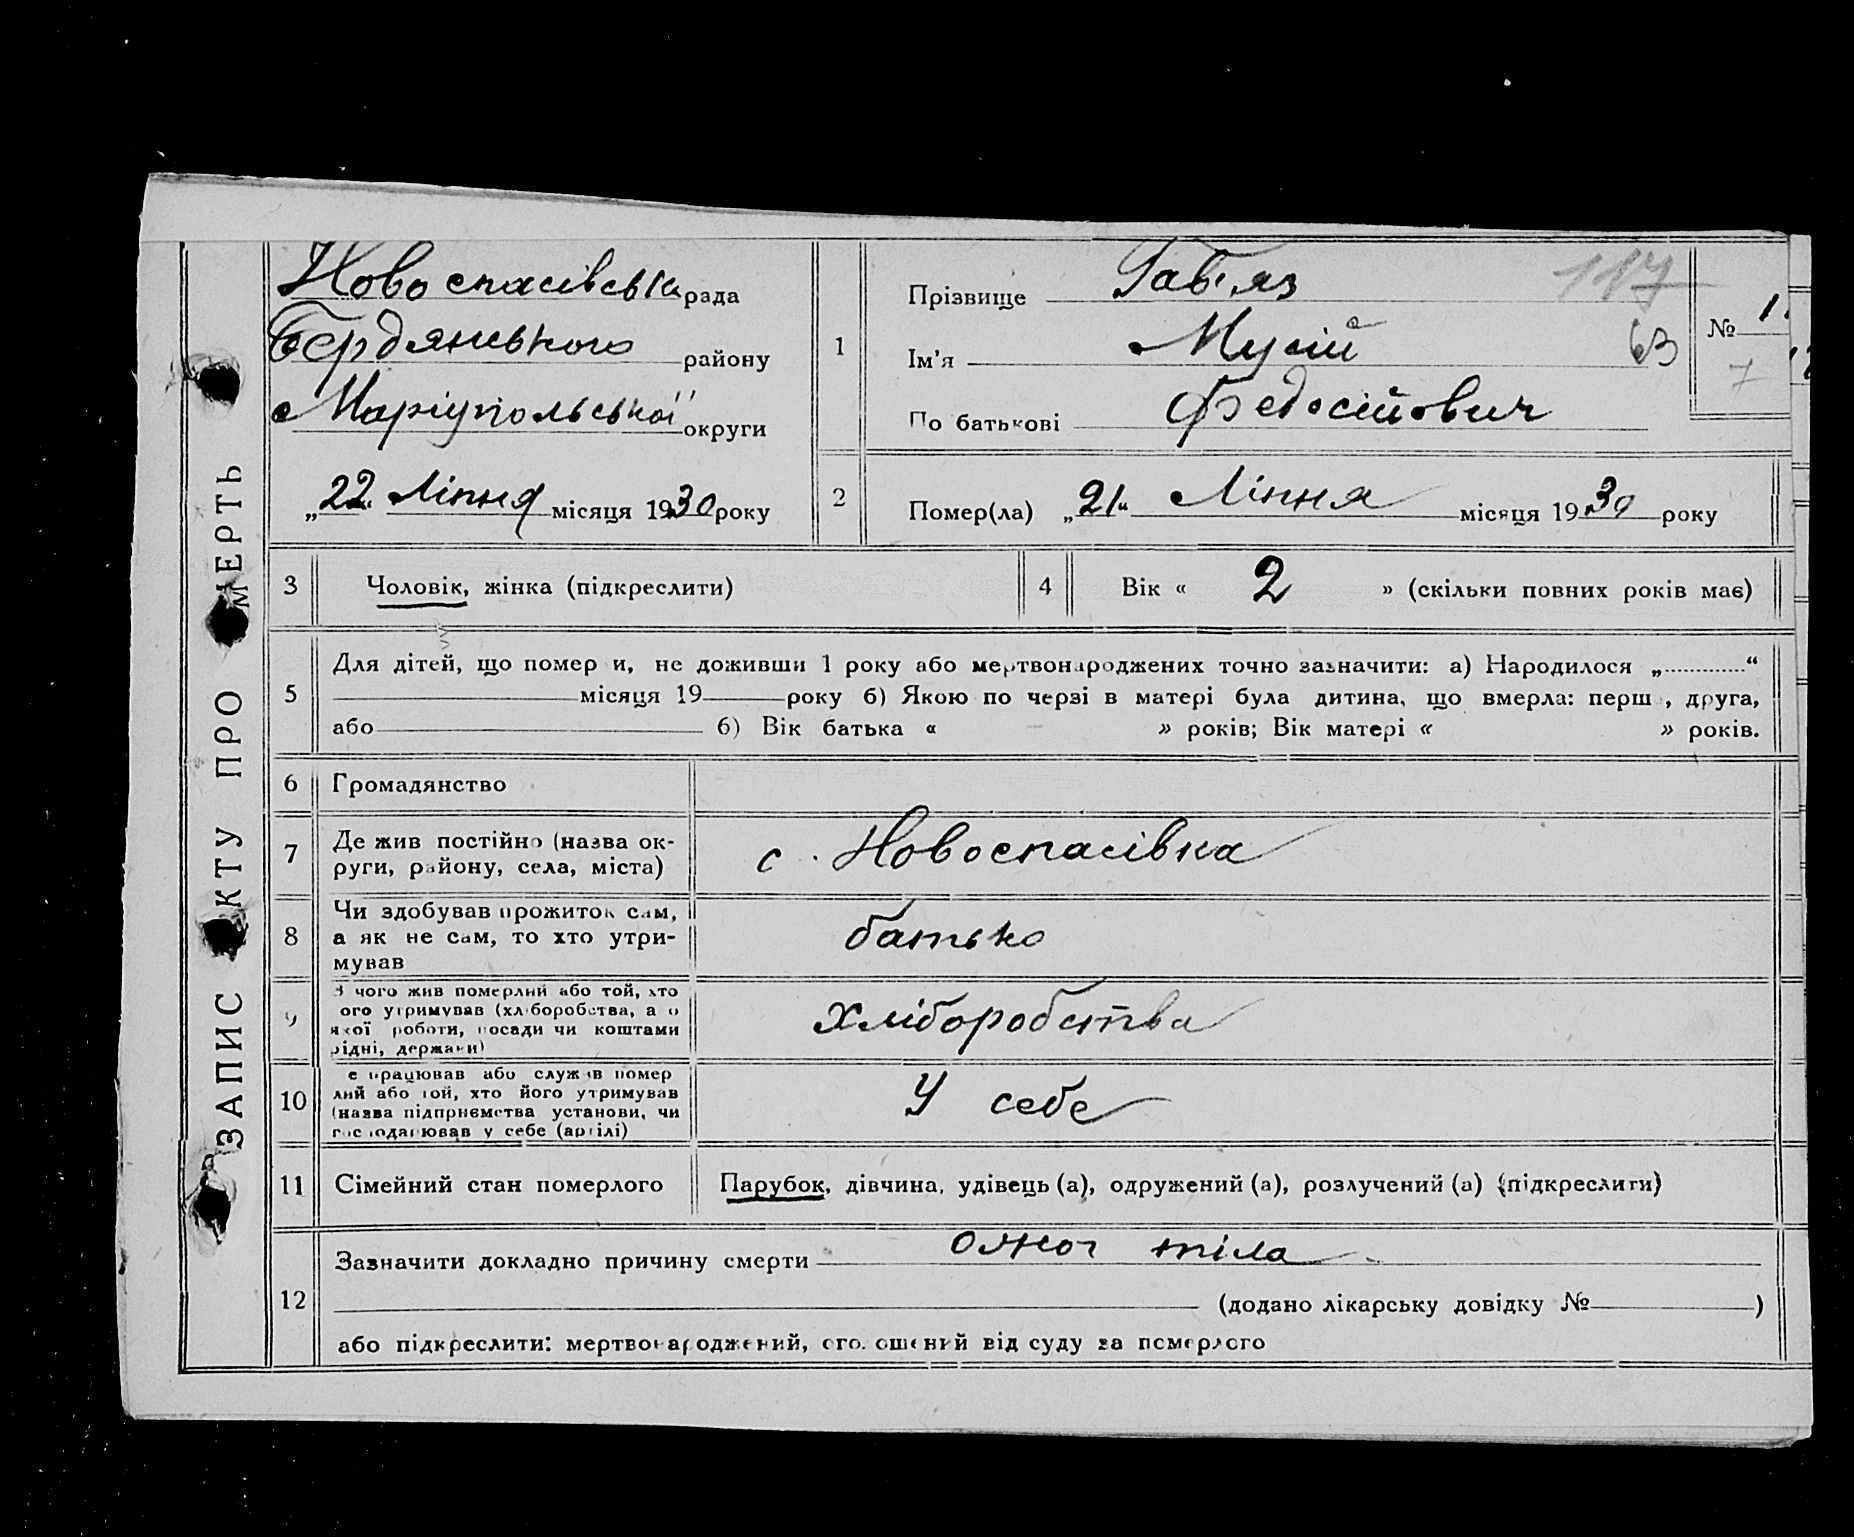 ЗАПИС АКТУ ПРО СМЕРТЬ
Новоспасівська рада
Бердянського району
Маріупольської округи
„22“ Ліпня місяця 1930 року
1
Прізвище Гав'яз
Ім'я Мусій
По батькові Федосійович
117
63
№ 1
7
2
Помер(ла) „21“ Ліпня місяця 1930 року
3 Чоловік, жінка (підкреслити)
4 Вік « 2 » (скільки повних років має)
5
Для дітей, що помер и, не доживши 1 року або мертвонароджених точно зазначити: а) Народилося „ “
місяця 19 року б) Якою по черзі в матері була дитина, що вмерла: перш , друга,
або б) Вік батька « » років; Вік матері « » років.
6 Громадянство
7 Де жив постійно (назва ок-
руги, району, села, міста)
с. Новоспасівка
8 Чи здобував прожиток сам,
а як не сам, то хто утри-
мував
батько
9 З чого жив померлий або той, хто
ого утримував (хліборобства, а о
якої роботи, посади чи коштами
рідні, держави)
хліборобства
10 е працював або служив помер
лий або той, хто його утримував
(назва підприємства установи, чи
господарював у себе (артілі)
У себе
11 Сімейний стан померлого
Парубок, дівчина, удівець (а), одружений (а), розлучений (а) (підкреслити)
12
Зазначити докладно причину смерти ожог тіла
(додано лікарську довідку № )
або підкреслити: мертвонароджений, оголошений від суду за померлого